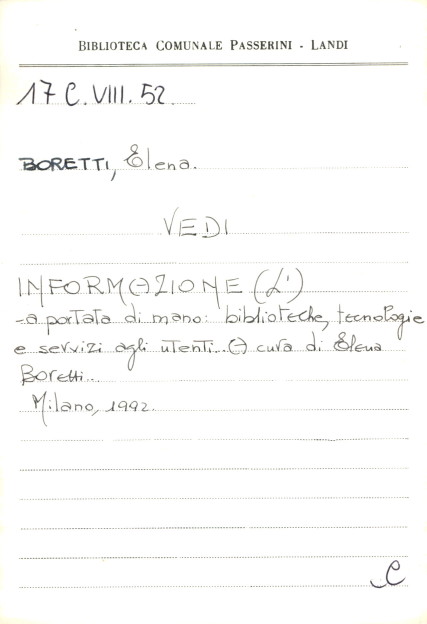 BIBLIOTECA COMUNALE PASSERINI - LANDI
17 C. VIII. 52
BORETTI, Elena.
VEDI
INFORMAZIONE (L')
-a portata di mano: biblioteche, tecnologie
e servizi agli utenti... A cura di Elena
Boretti..
Milano, 1992.
C